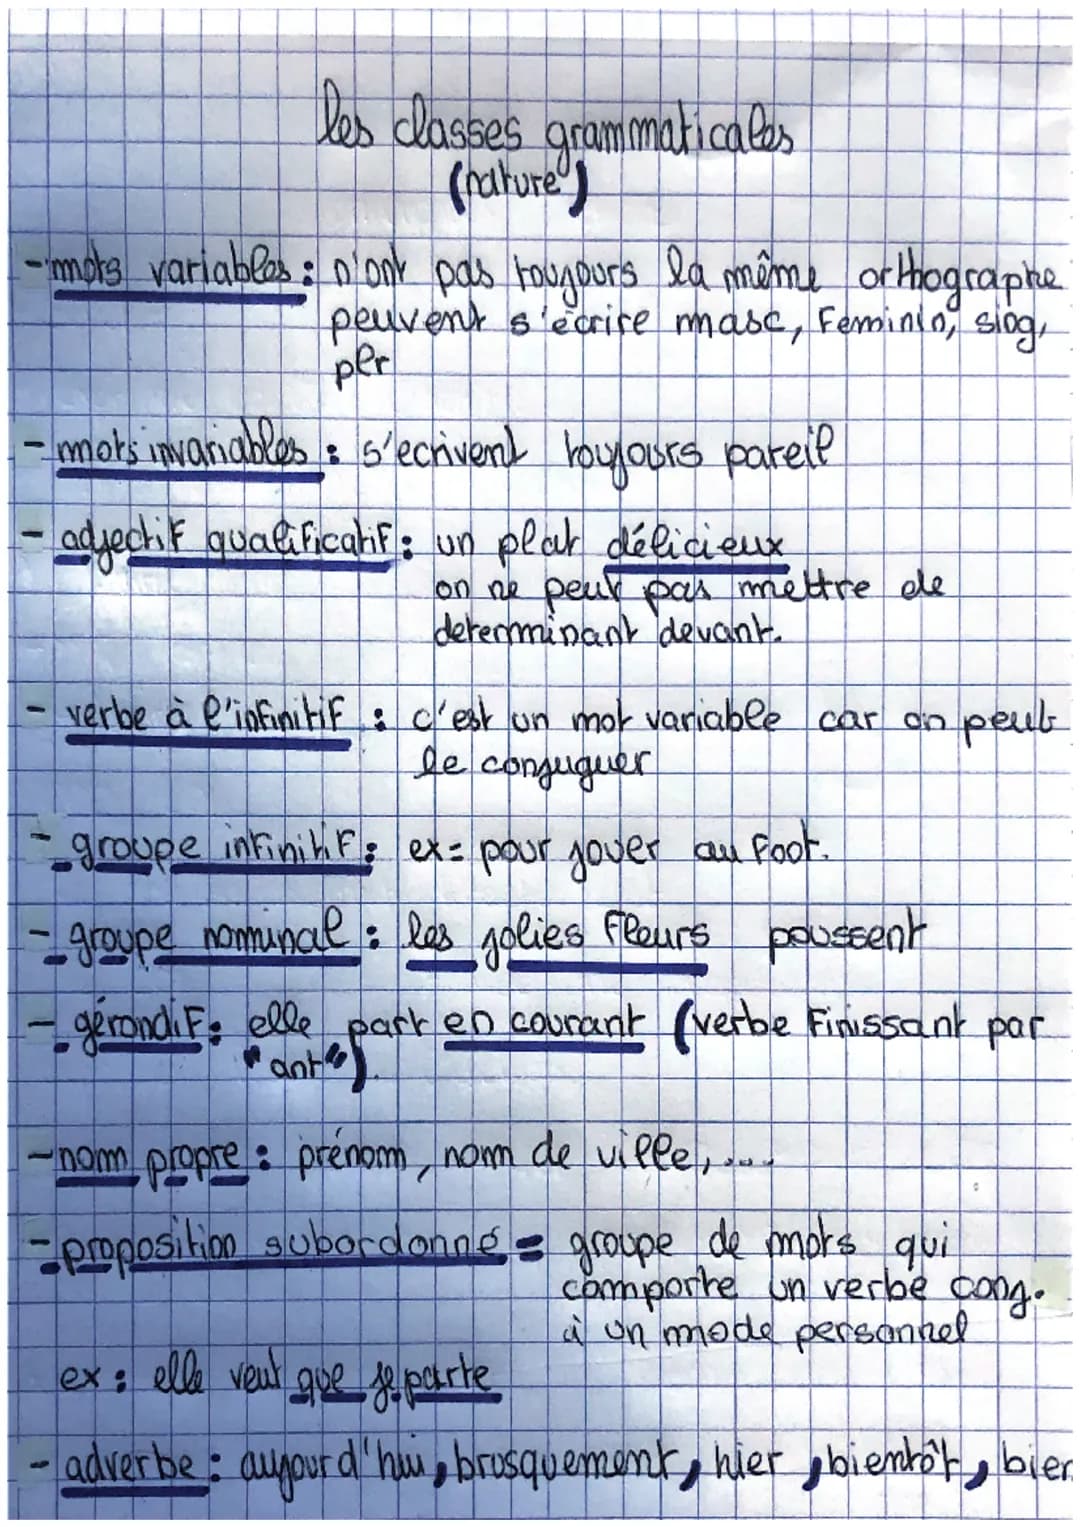 les classes grammaticales
(nature)
- mots variables : n'ont pas toujours la même orthographe
peuvent s'écrire masc, Feminin, sing,
plr
- mots invariables : s'ecrivent toujours pareil
- adjectif qualificatif : un plat délicieux
on ne peut pas mettre de
determinant devant.
- verbe à l'infinitif : c'est un mot variable car on peut
le conjuguer
- groupe infinitif : ex = pour jouer au foot.
- groupe nominal : les jolies fleurs poussent
- gérondif : elle part en courant (verbe finissant par
"ant").
- nom propre : prénom, nom de ville, ....
- proposition subordonné = groupe de mots qui
comporte un verbe conj.
à un mode personnel
ex : elle veut que je parte
- adverbe : aujourd'hui, brusquement, hier, bientôt, bien